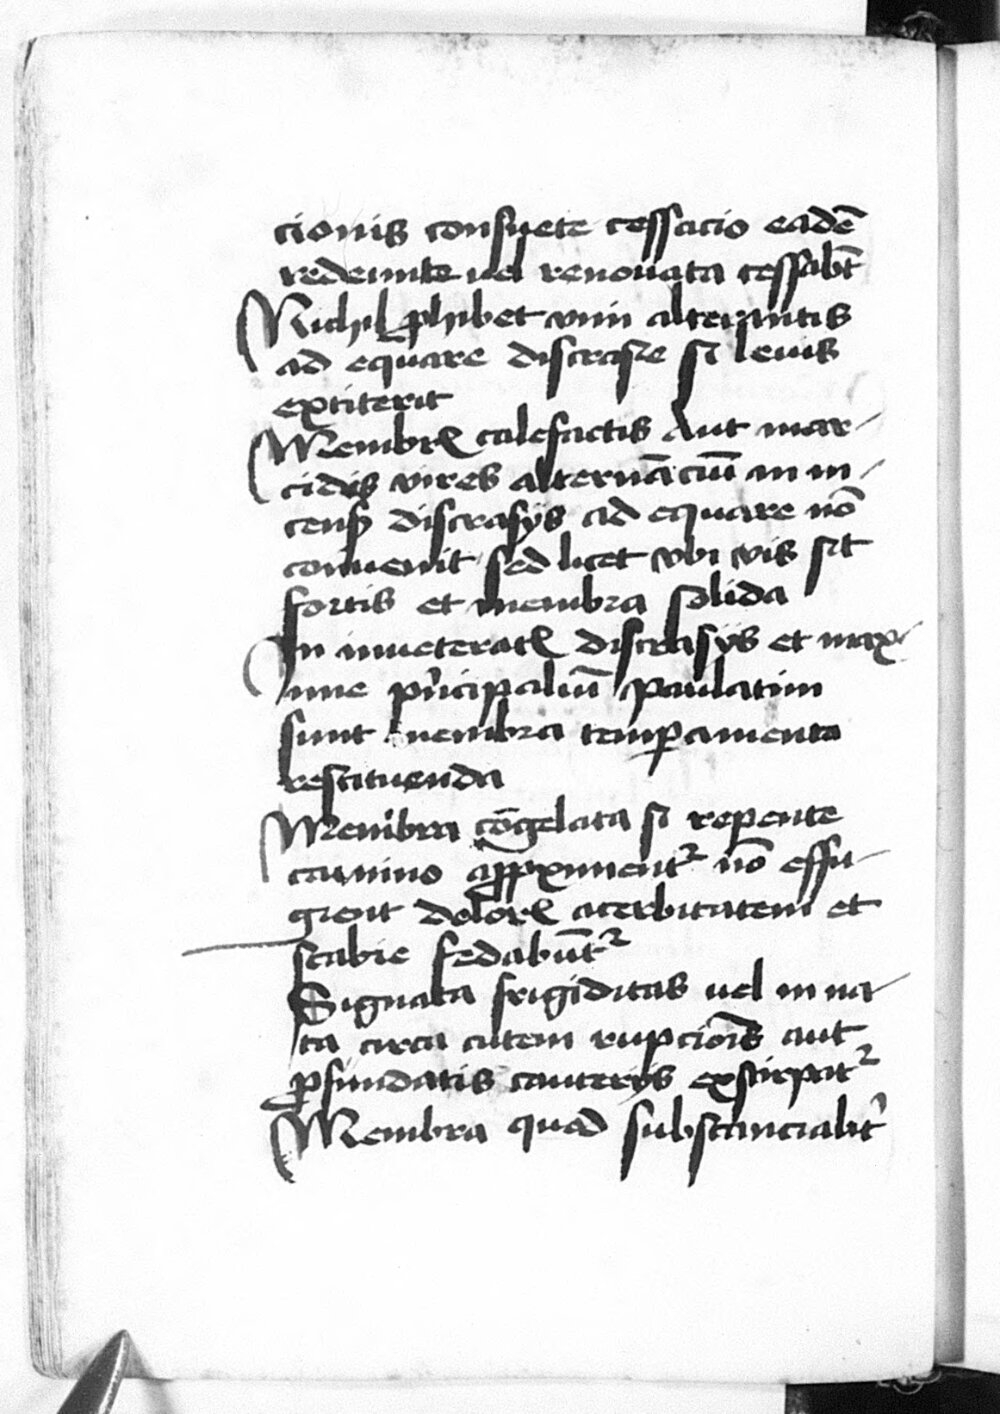 cionis consuete cessacio eadē
redeunte uel renouata cessabt̄
Nichil ꝓhibet vim alterantis
ad equare discrasie si leuis
extiterit
Membrꝭ calefactis Aut mar-
cidis vires alternāciū in in-
tensis discrasijs ad equare nō
conuenit sed licet vbi vis sit
fortis et membra solida
In inueteratꝭ discrasijs et max-
ime pͥncipaliū paulatim
sunt membra temꝑamenta
restituenda
Membra cōgelata si repente
camino aꝓpximentᷣ nō effu-
gient dolorꝭ acerbitatem et
scabie fedabūtᷣ
Signata frigiditas uel in na-
ta circa cutem rupciōis aut
ꝓfundatis cauterijs exstirpatᷣ
Membra qued substancialitᷣ